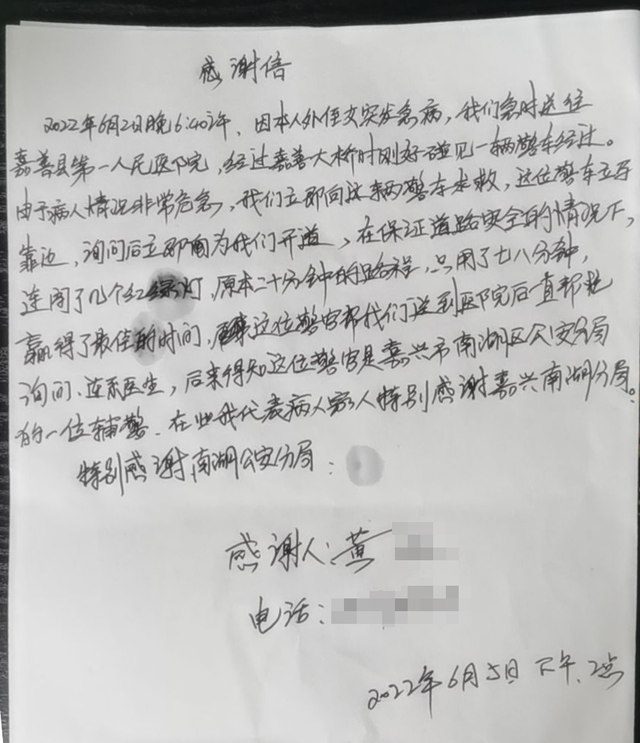 感谢信
2022年6月2日晚6:40许，因本人外侄女突发急病，我们急时送往
嘉善县第一人民医院，经过嘉善大桥时刚好碰见一辆警车经过。
由于病人情况非常危急，我们立即向这辆警车求救，这位警车立马
靠边，询问后立即为我们开道，在保证道路安全的情况下，
连闯了几个红绿灯，原本二十分钟的路程，只用了七八分钟，
赢得了最佳的时间，这位警官帮我们送到医院后一直帮忙
询问、连系医生，后来得知这位警官是嘉兴市南湖区公安分局
的一位辅警、在此我代表病人家人特别感谢嘉兴南湖分局。
特别感谢南湖公安分局：
感谢人：黄
电话：
2022年6月5日下午、2点